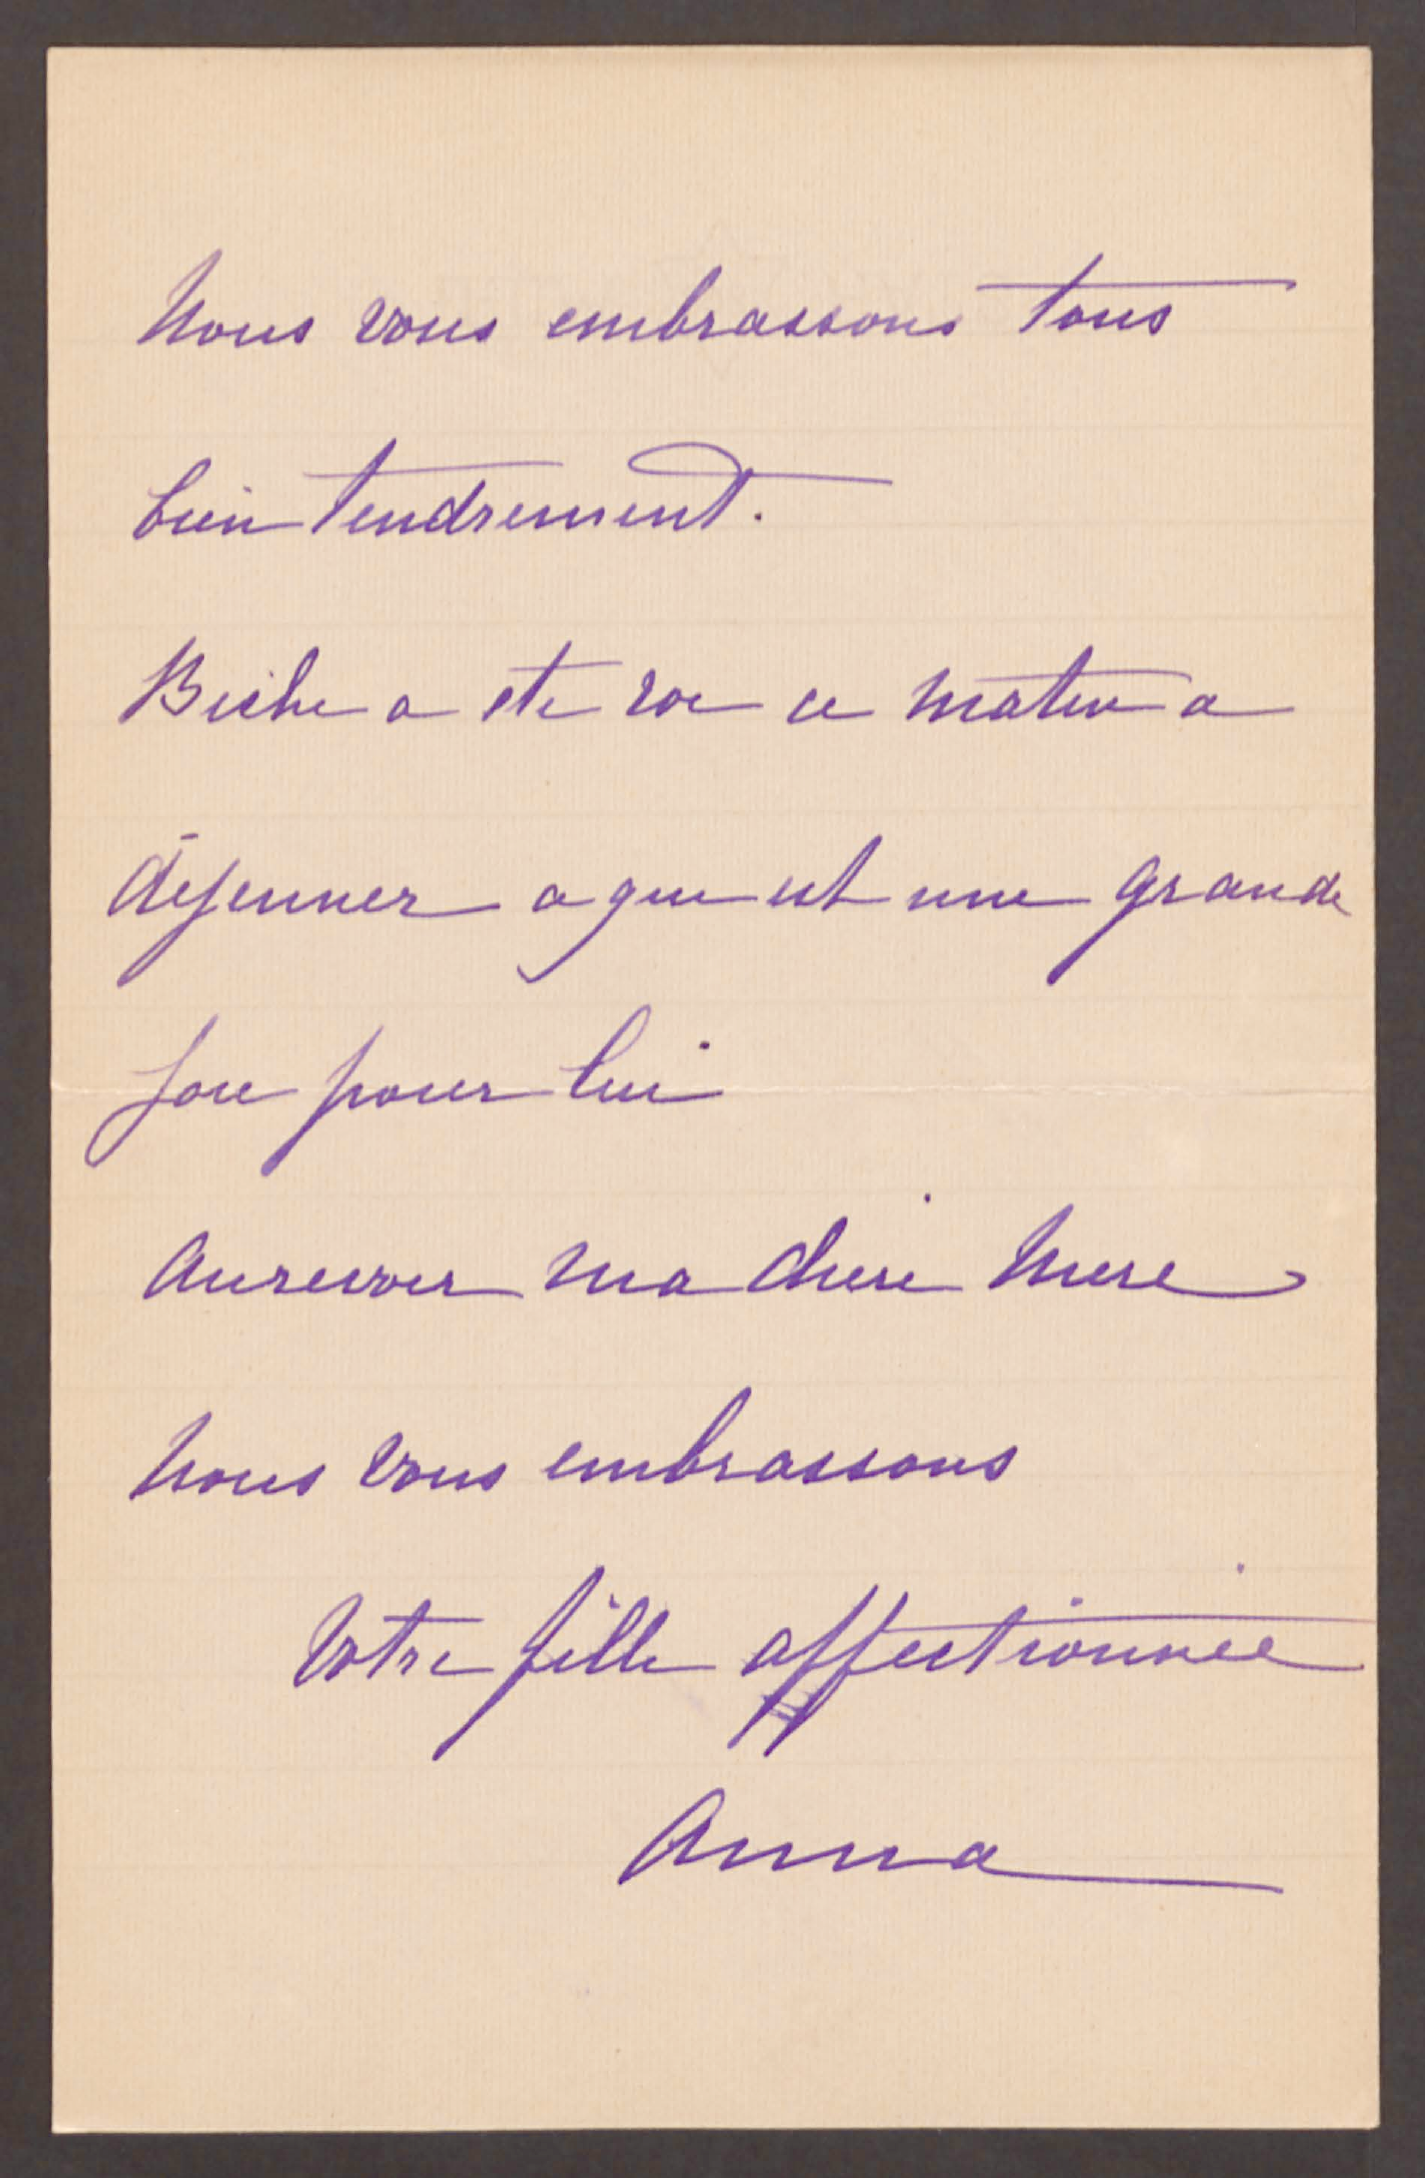 Nous vous embrassons tous
bien tendrement.
a ete ce matin a
dejeunner a qui est une grande
joie pour lui
Aurevoir ma chere Mere
Nous vous embrassons
Votre fille affectionnée
Anna